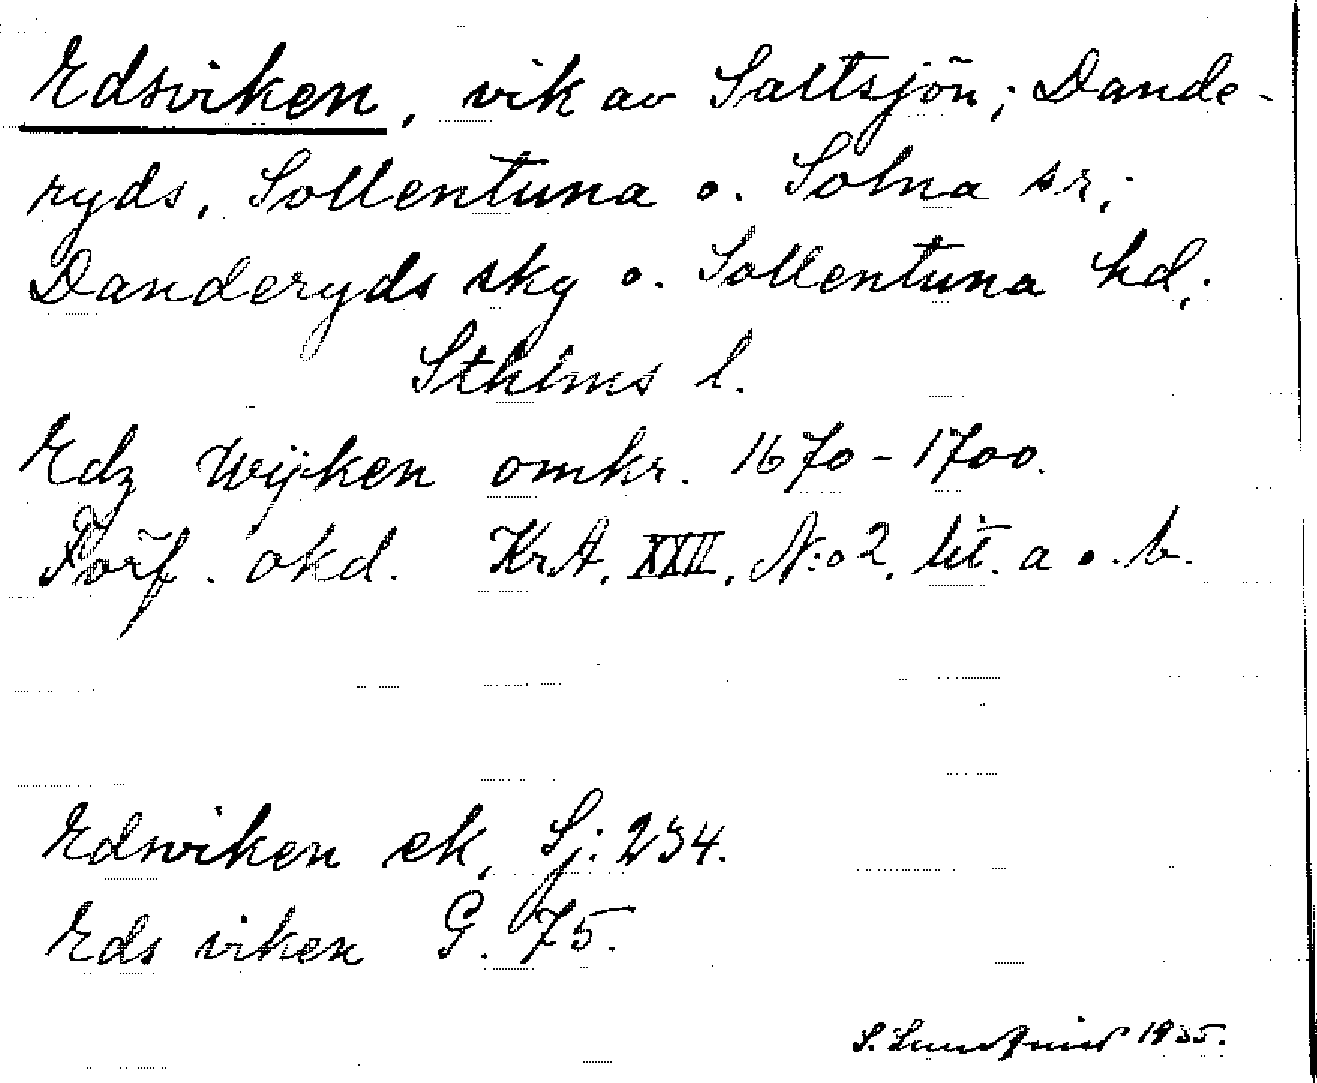 Edsviken, vik av Saltsjön; Dande-
ryds, Sollentuna o. Solna sr;
Danderyds skg o. Sollentuna hd;
Sthlms l.
Edz Wijken omkr. 1670-1700.
Förf. okd. KrA, XXII, N:o 2, lit. a o. b.
Edsviken ek, Sj: 234.
Eds viken G. 75.
S. 1935.